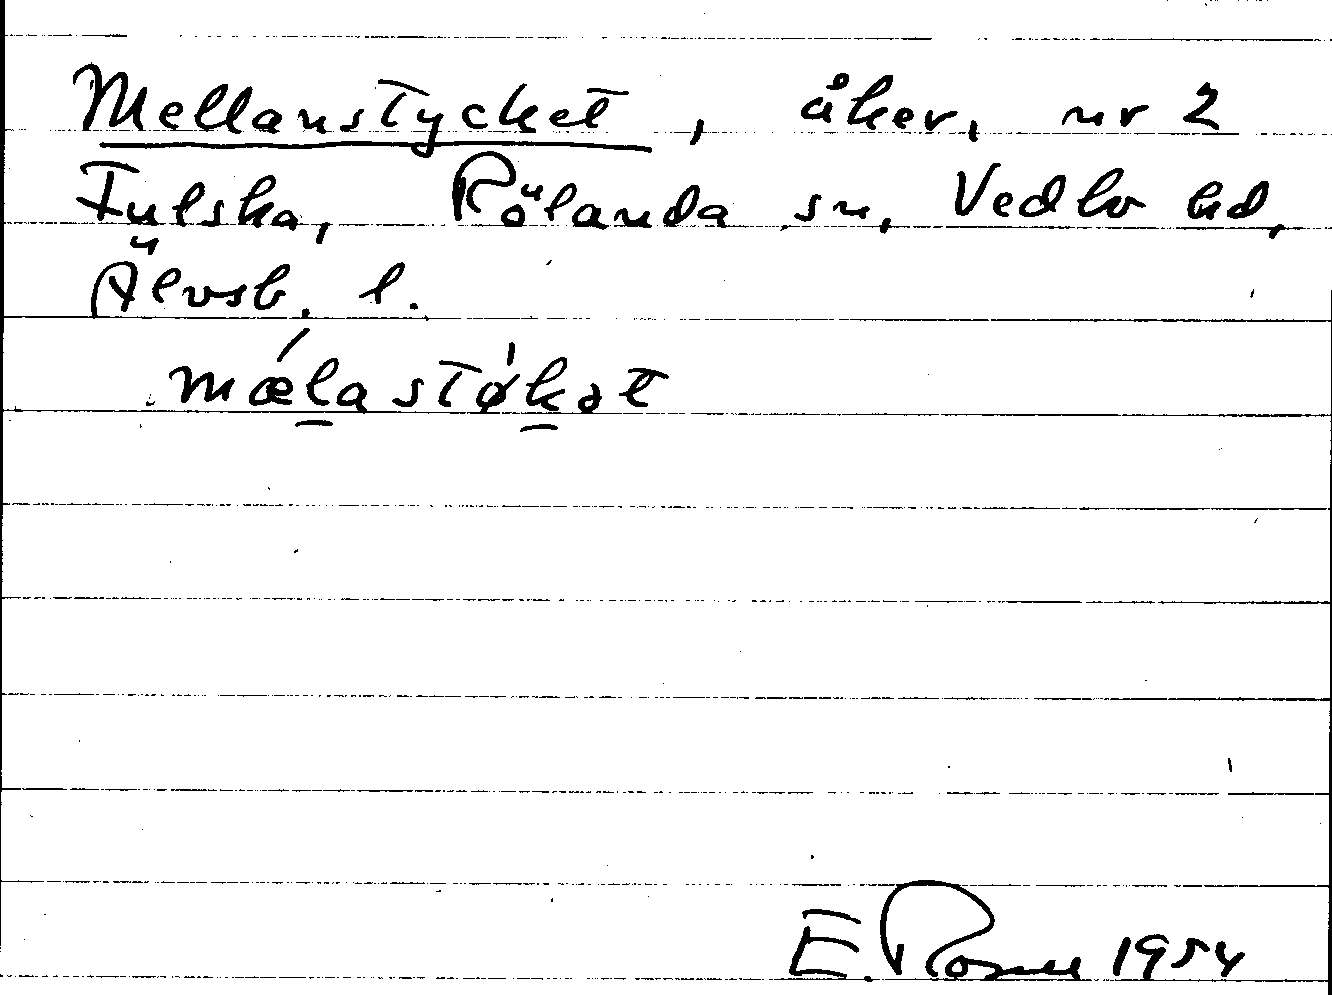 Mellanstycket, åker, nr 2
Fulska, Rölanda sn, Vedbo hd,
Älvsb. l.
mǽla stø̍kət
E. Rosell 1954